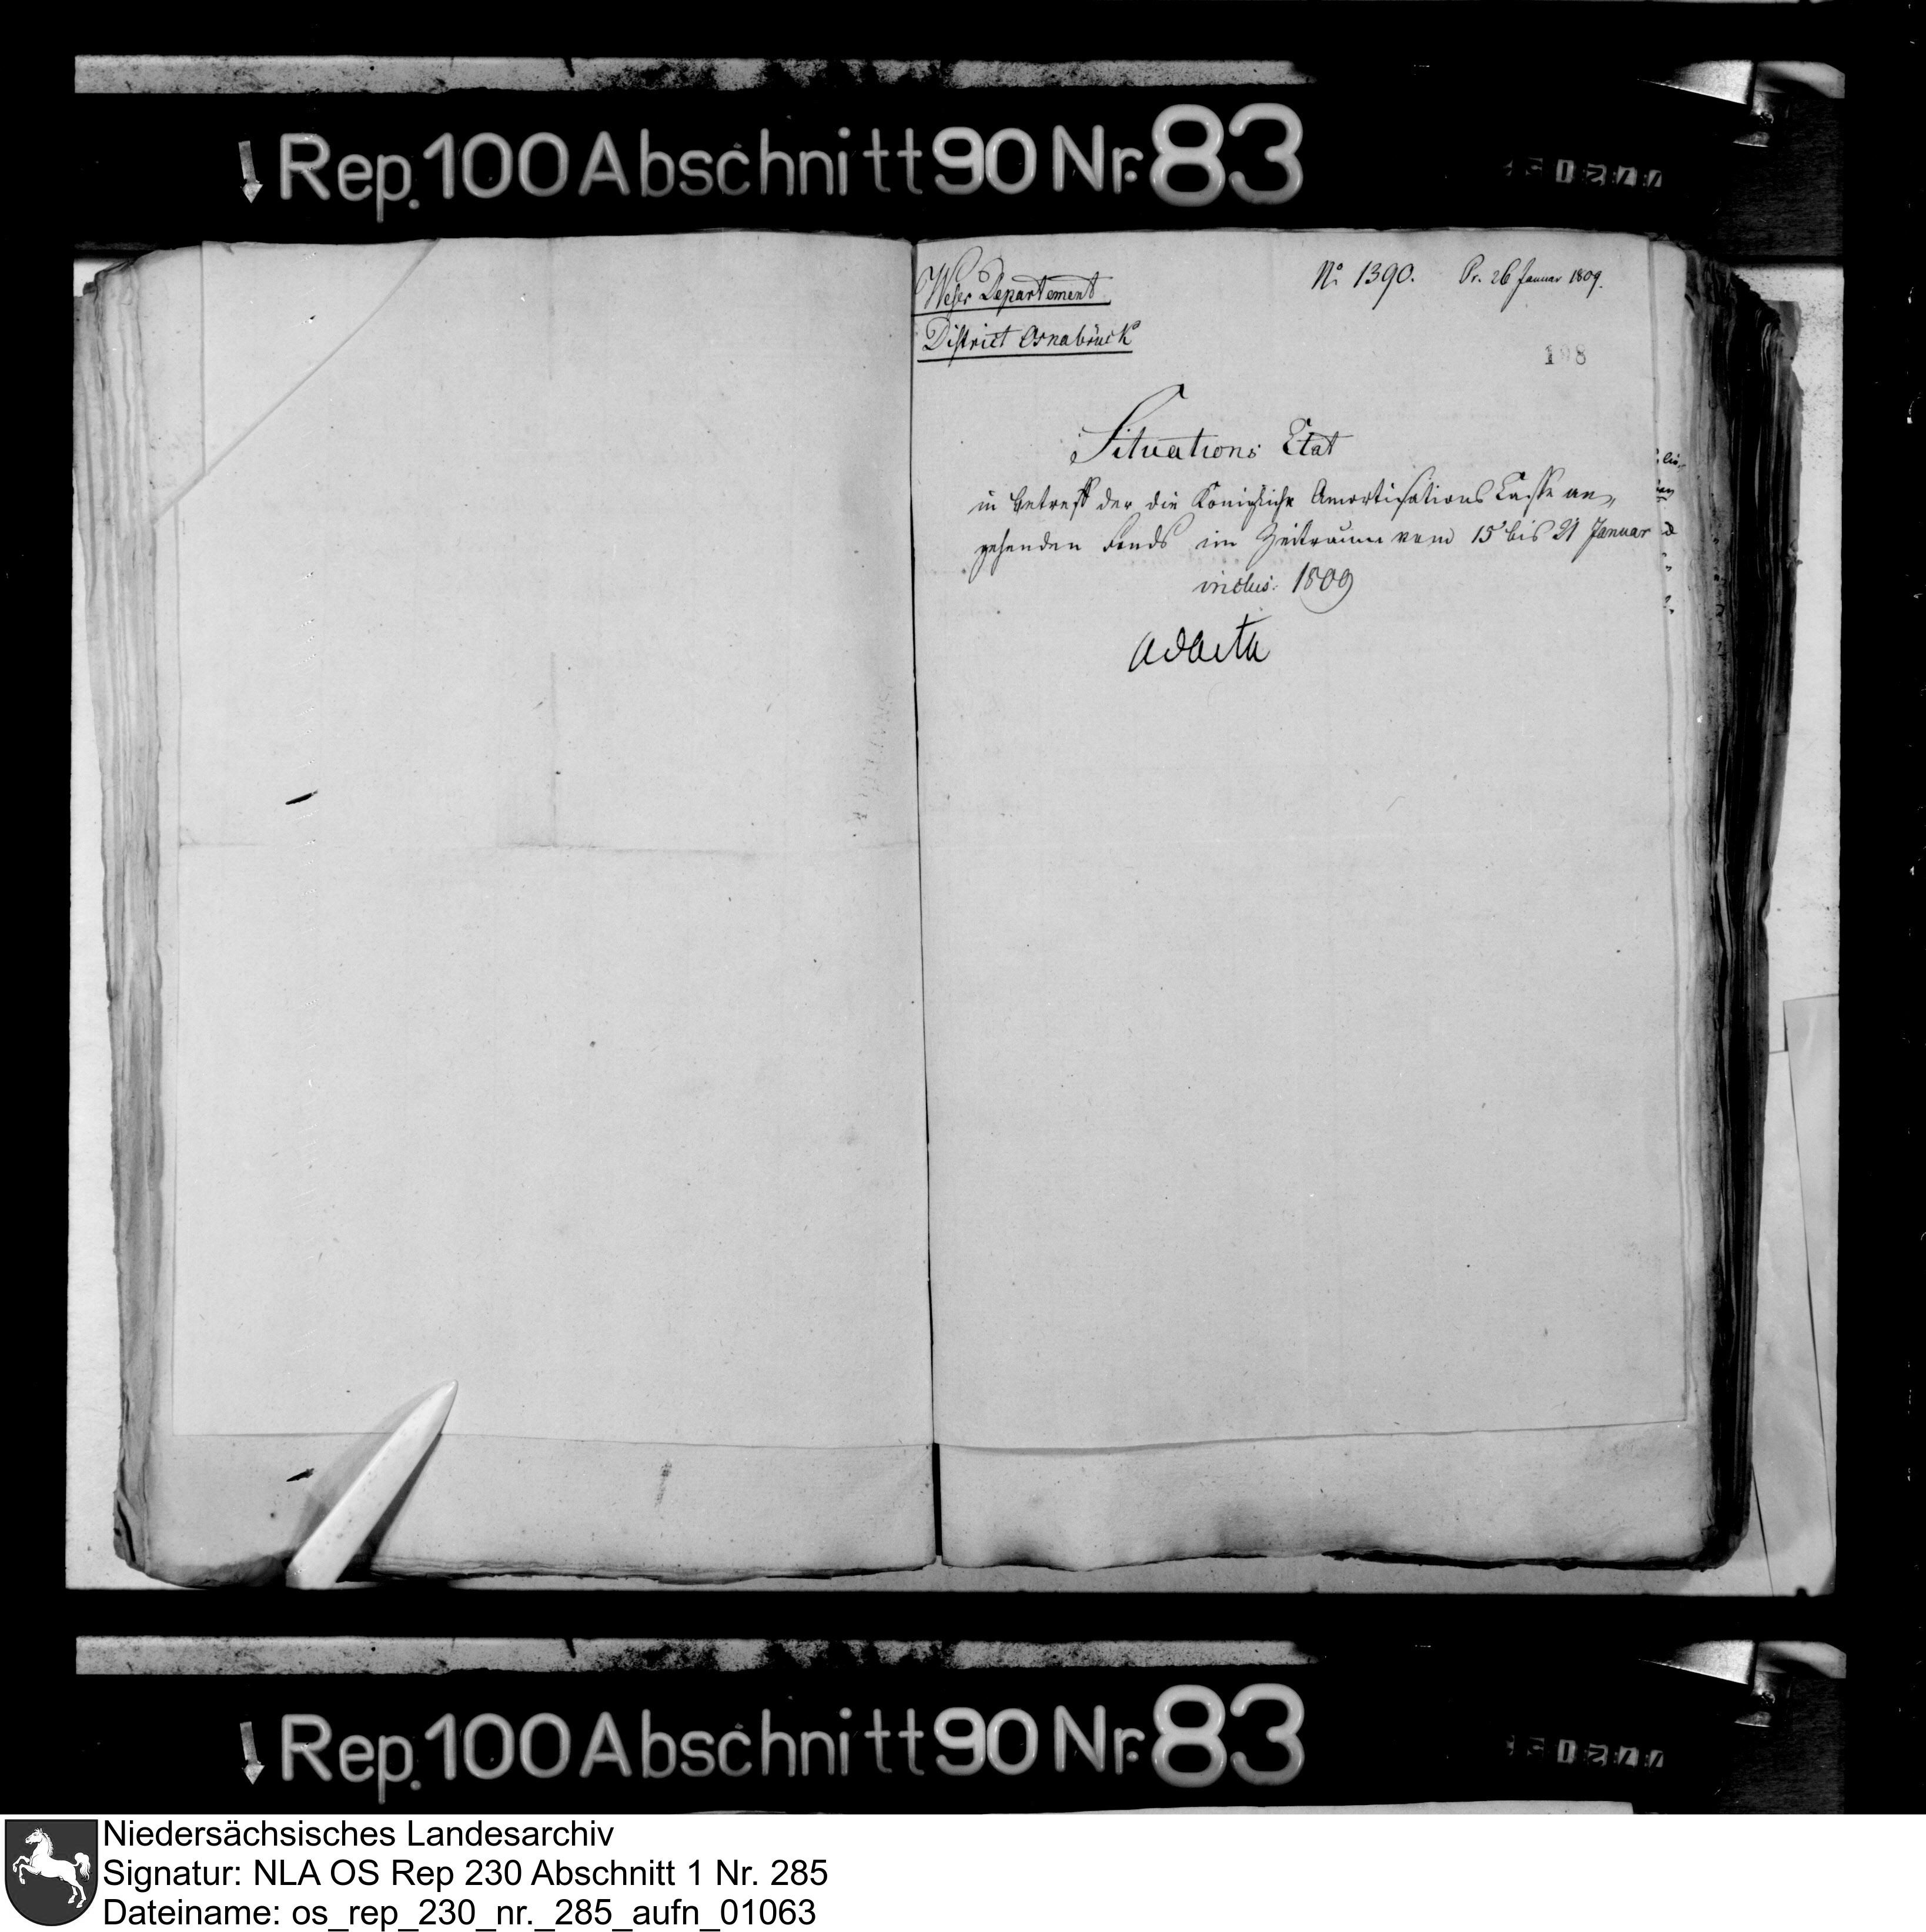 Rep. 100 Abschnitt 90 Nr. 83
Weser Departement
District Osnabrück
No 1390. Pr. 26 Januar 1809.
Situations Etat
in betreff der die Königliche Amortisations Casse an„
gehenden Fonds im Zeitraum vom 15 bis 21 Januar
inclus: 1809
ad acta
Rep. 100 Abschnitt 90 Nr. 83
Niedersächsisches Landesarchiv
Signatur: NLA OS Rep 230 Abschnitt 1 Nr. 285
Dateiname: os_rep_230_nr._285_aufn_01063